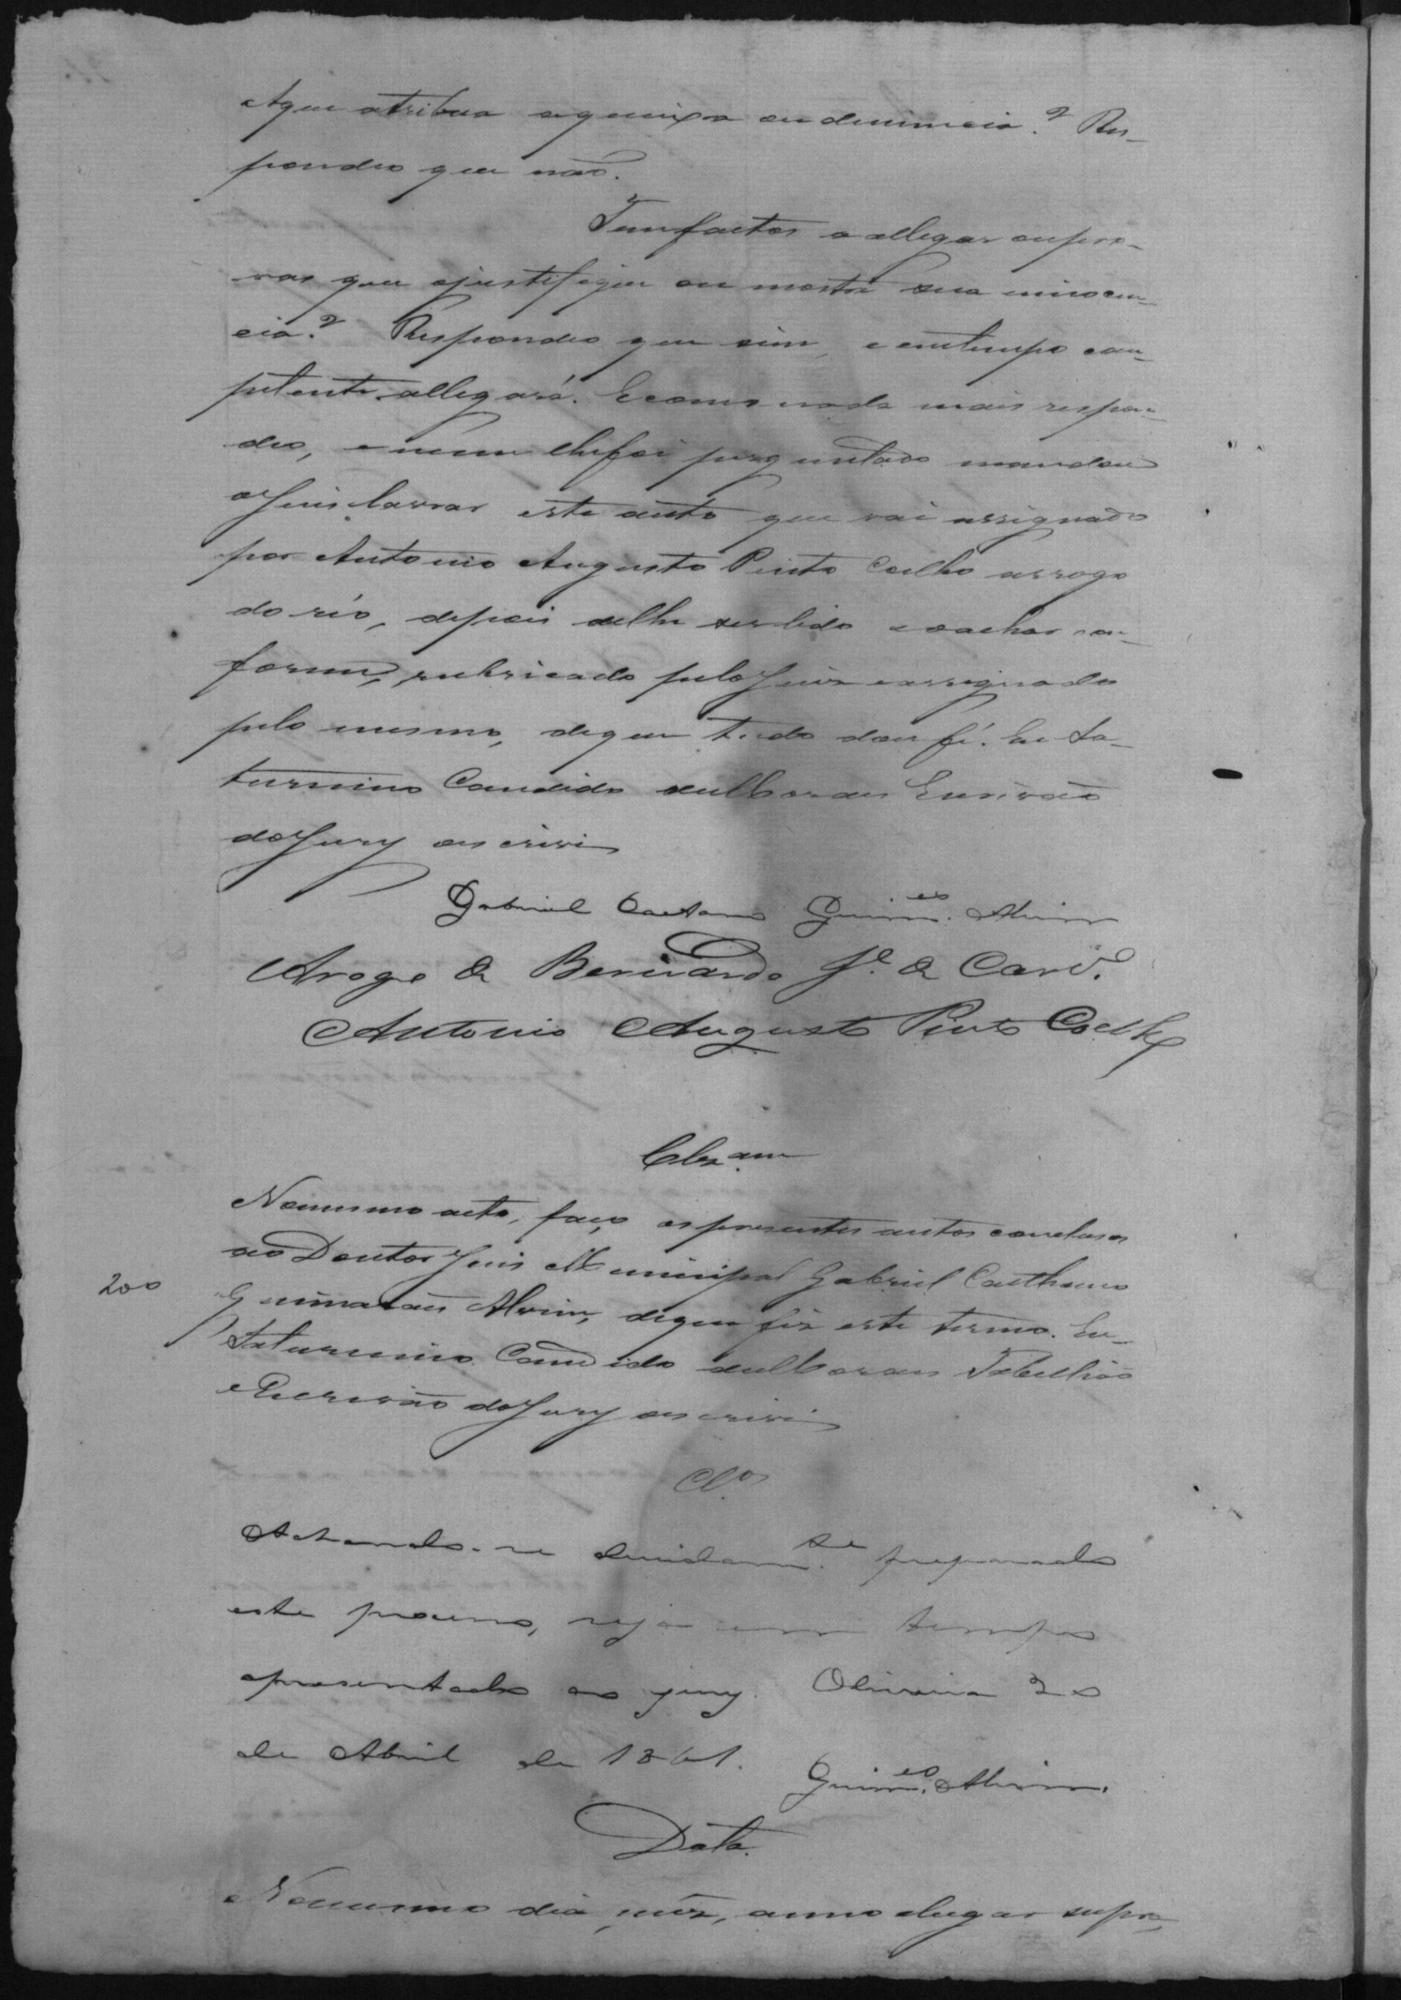 Aque atribua aqueixa ou denuncia? Res-
pondeo que não.
Tem factos a allegar ou pro-
vas que ojustifique ou mostre sua innocen-
cia? Respondeo que sim, e em tempo com-
petente allegará. E como nada mais respon-
deo, e nem lhe foi perguntado mandou
o Juis lavrar este auto que vai assignado
por Antonio Augusto Pinto Coelho arrogo
do réo, depois delhe ser lido e o achar con-
forme, rubricado pelo Juiz e assignado
pelo mesmo, de que tudo dou fé. Eu Sa-
turnino Candido Escrivão
do Jury o escrivi
Gabriel Caetano Guim.es Alvim
Arogo de Bernardo Je. de Carv.o
Antonio Augusto Pinto Coelho
Clsam
No mesmo acto, faço os presentes autos conclusos
ao Doutor Juis Municipal Gabriel Caethano
200
Guimarães Alvim, de que fiz este termo. Eu
Saturnino Candido Tabellião
e Escrivão do Jury o escrivi
Cl.os
Achando-se devidam.te preparado
este processo, seja em tempo
apresentado ao jury. Oliveira 20
de Abril de 1861. Guim.es Alvim.
Data.
No mesmo dia, mez, anno e lugar supra,